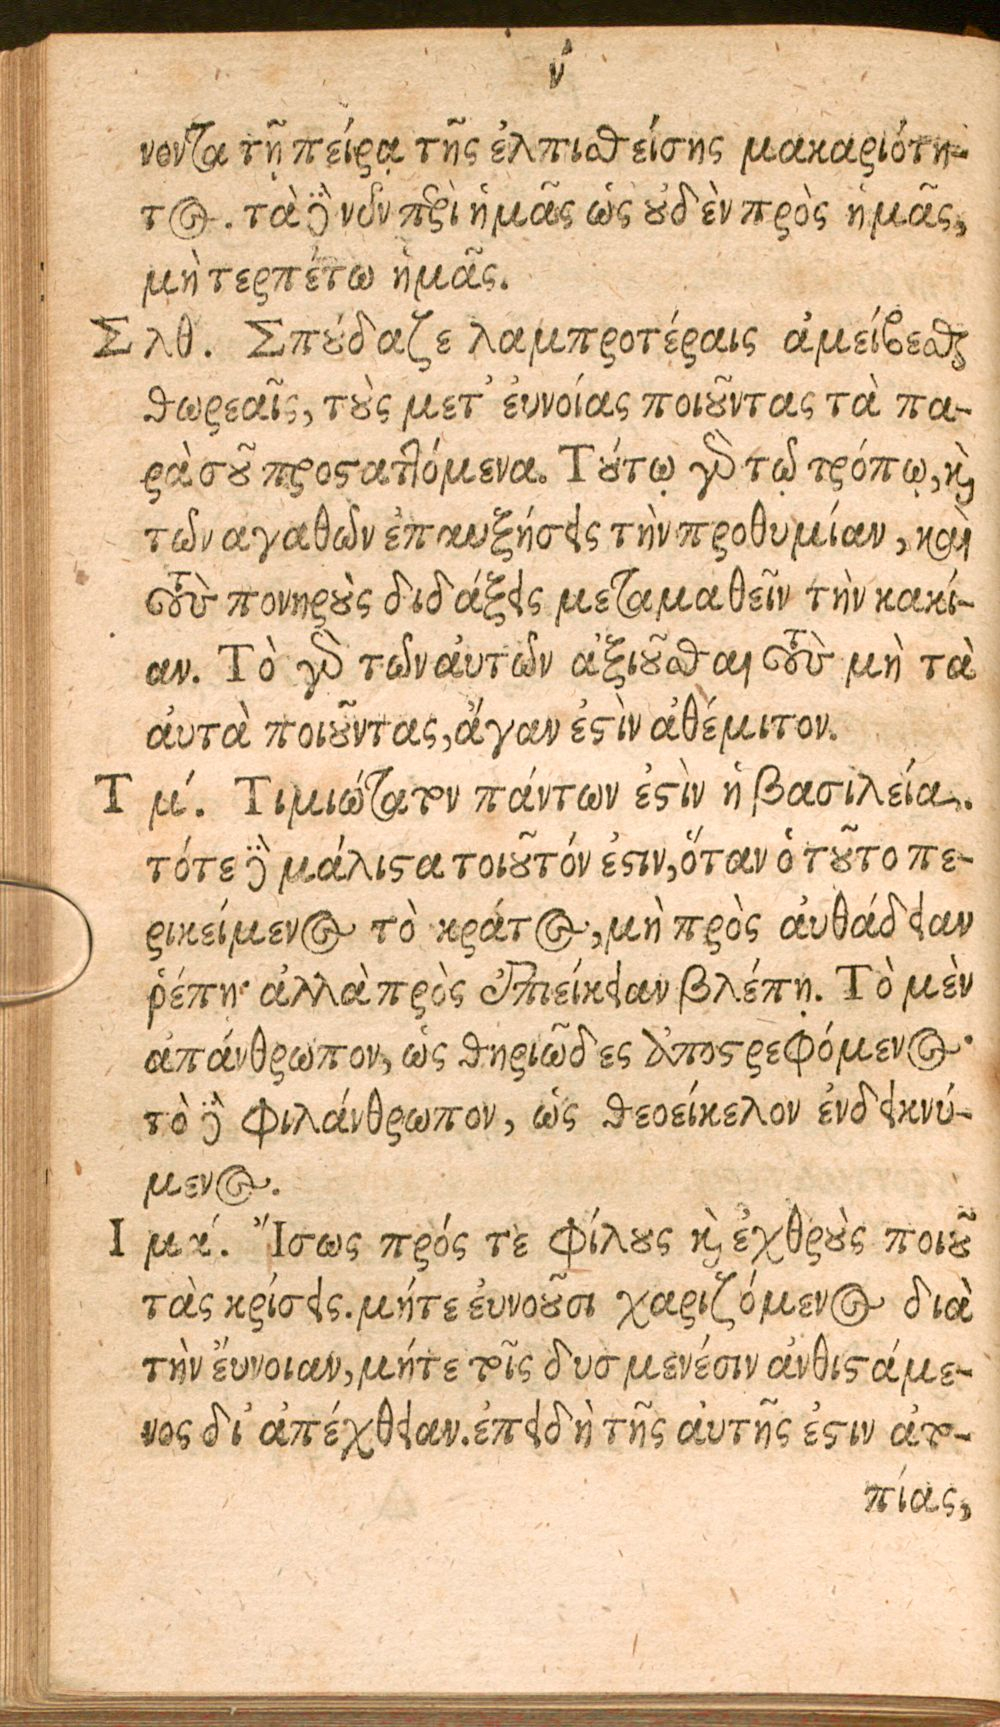 ν
νονται τῇ πείρᾳ τῆς ἐλπισθείσης μακαριότη-
τος. τὰ δὲ νῦν περὶ ἡμᾶς ὡς οὐδὲν πρὸς ἡμᾶς,
μὴ τερπέτω ἡμᾶς.
Σ λθ. Σπούδαζε λαμπροτέραις ἀμείβεσθαι
δωρεαῖς, τοὺς μετ᾽ ἐυνοίας ποιοῦντας τὰ πα-
ρὰ σοῦ προσταττόμενα. Τούτῳ γὰρ τῷ τρόπῳ, καὶ
τῶν αγαθῶν ἐπαυξήσεις τὴν προθυμίαν, καὶ
τοὺς πονηροὺς διδάξεις μεταμαθεῖν τὴν κακί-
αν. Τὸ γὰρ τῶν ἀυτῶν ἀξιοῦσθαι τοὺς μὴ τὰ
ἀυτὰ ποιοῦντας, ἄγαν ἐστὶν ἀθέμιτον.
Τ μ΄. Τιμιώτατον πάντων ἐστὶν ἡ βασιλεία.
τότε δὲ μάλιστα τοιοῦτόν ἐστιν, ὅταν ὁ τοῦτο πε-
ρικείμενος τὸ κράτος, μὴ πρὸς ἀυθάδειαν
ῥέπῃ· ἀλλὰ πρὸς ἐπιείκειαν βλέπῃ. Τὸ μὲν
ἀπάνθρωπον, ὡς θηριῶδες ἀποστρεφόμενος·
τὸ δὲ φιλάνθρωπον, ὡς θεοείκελον ἐνδεικνύ-
μενος.
Ι μα΄. Ἴσως πρός τε φίλους καὶ ἐχθροὺς ποιοῦ
τὰς κρίσεις. μήτε ἐυνοῦσι χαριζόμενος διὰ
τὴν ἔυνοιαν, μήτε τοῖς δυσμενέσιν ἀνθιστάμε-
νος δι᾽ ἀπέχθειαν. ἐπειδὴ τῆς ἀυτῆς ἐστιν ἀτο-
πίας,